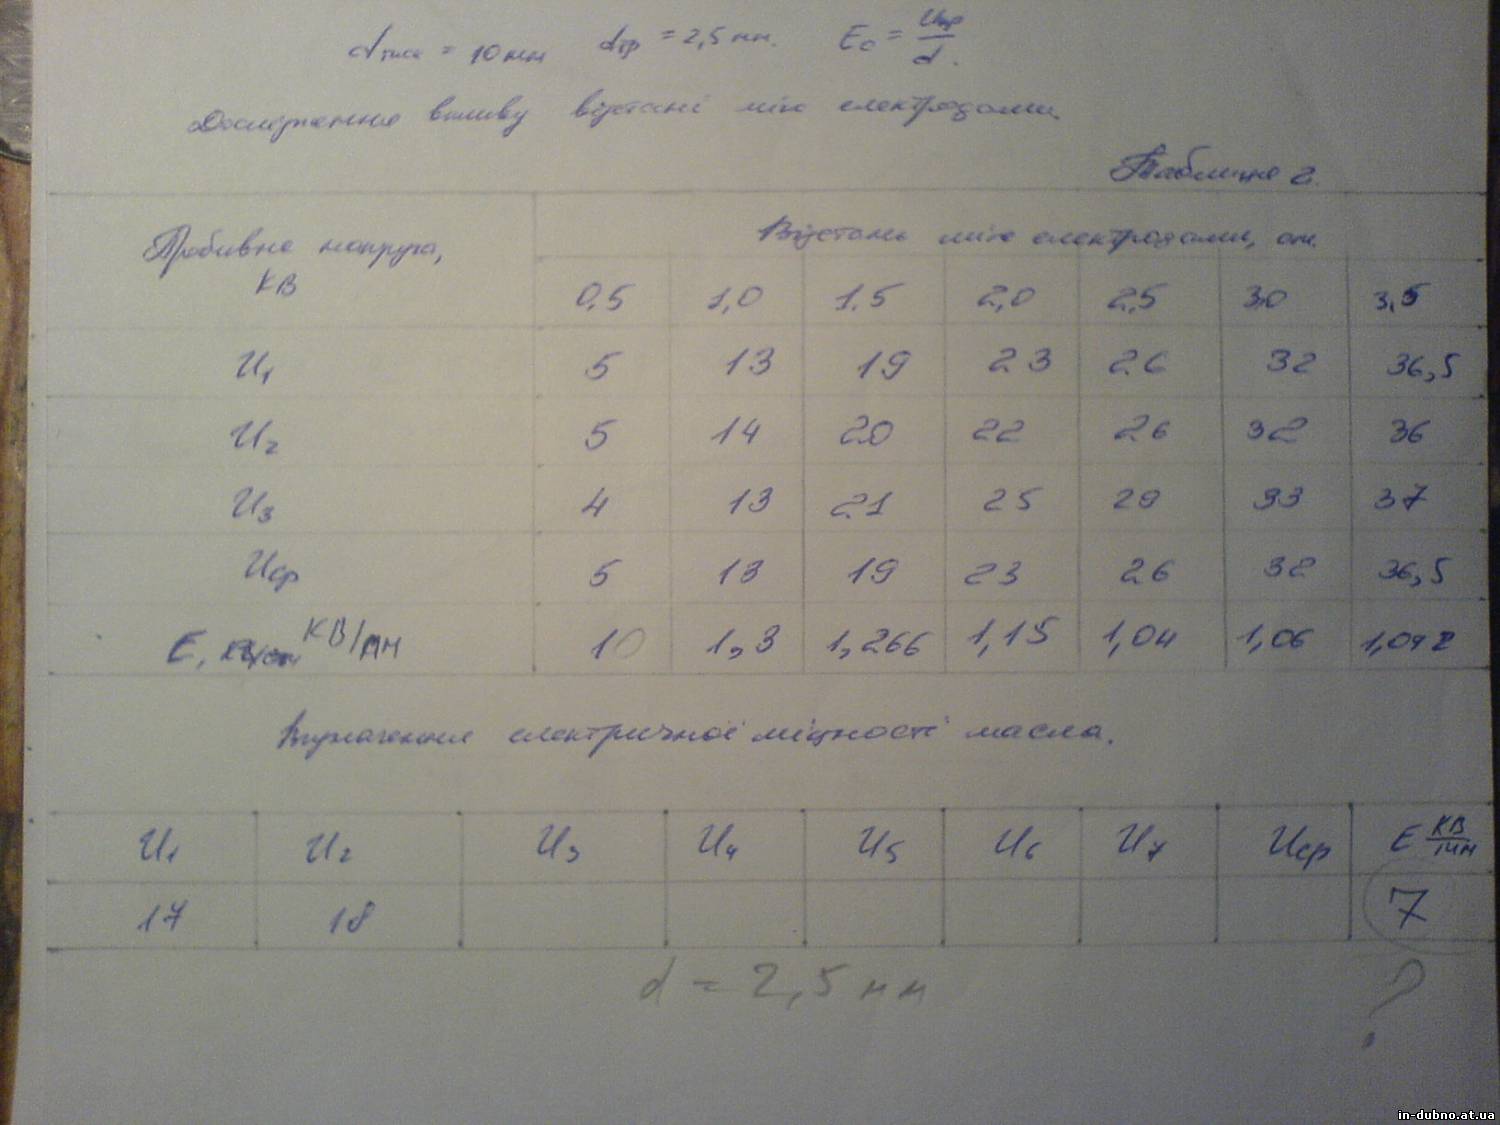 = 10 мм d тр = 2,5 мм. E = Uпр / d.
Дослідження впливу відстані між електродами.
Таблиця 2.
Пробивна напруга, КВ Відстань між електродами, см.
0,5 1,0 1,5 2,0 2,5 3,0 3,5
U1 5 13 19 23 26 32 36,5
U2 5 14 20 22 26 32 36
U3 4 13 21 25 29 33 37
Uср 5 13 19 23 26 32 36,5
E, КВ/мм 10 1,3 1,266 1,15 1,04 1,06 1,042
Визначення електричної міцності масла.
U1 U2 U3 U4 U5 U6 U7 Uср E КВ/мм
17 18 7
d = 2,5 мм ?
in-dubno.at.ua